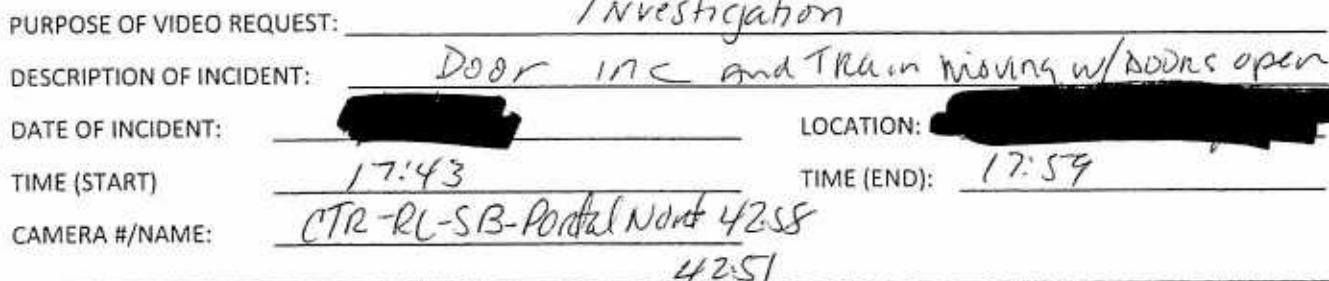 PURPOSE OF VIDEO REQUEST: Investigation
DESCRIPTION OF INCIDENT: Door inc and TRain moving w/DOORs open
DATE OF INCIDENT: LOCATION:
TIME (START) 17:43 TIME (END): 17:59
CAMERA #/NAME: CTR-RL-SB-Portal 4258
4251